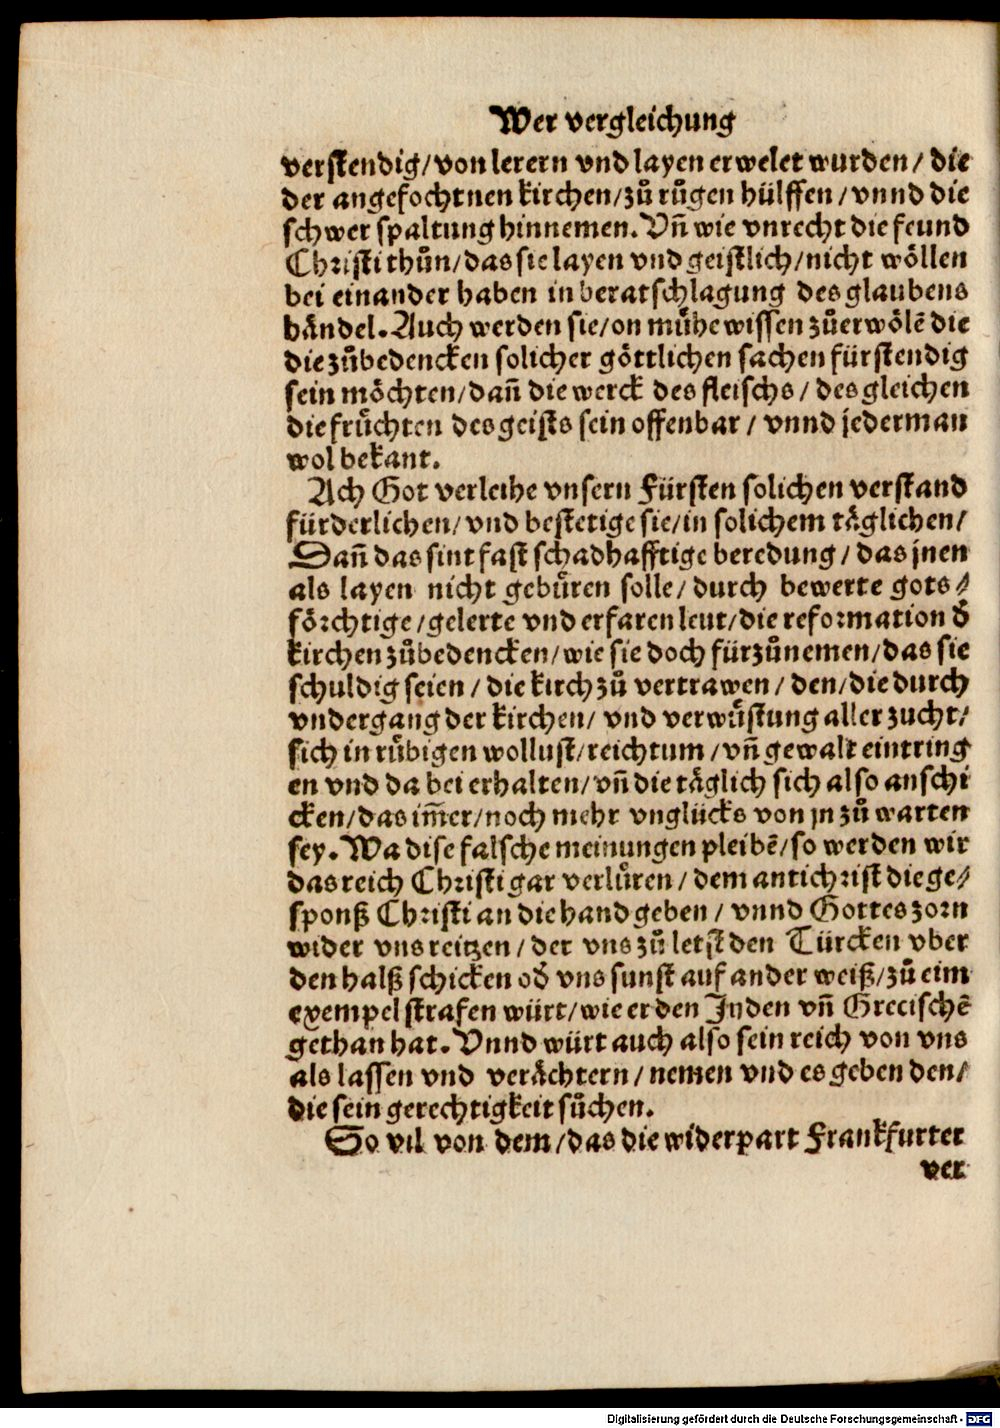 Wer vergleichung
verstendig/von lerern vnd layen erwelet wurden/ die
der angefochtnen kirchen/zů růgen hülffen/vnnd die
schwer spaltung hinnemen. Vñ wie vnrecht die feund
Christi thůn/das sie layen vnd geistlich/nicht wöllen
bei einander haben in beratschlagung des glaubens
händel. Auch werden sie/on mühe wissen zůerwölē die
die zůbedencken solicher göttlichen sachen fürstendig
sein möchten/dañ die werck des fleischs/ des gleichen
die früchten des geists sein offenbar/ vnnd jederman
wol bekant.
Ach Got verleihe vnsern Fürsten solichen verstand
fürderlichen/vnd bestetige sie/in solichem täglichen/
Dañ das sint fast schadhafftige beredung/das jnen
als layen nicht gebüren solle/durch bewerte gots/
förchtige/gelerte vnd erfaren leut/die reformation d̃
kirchen zůbedencken/wie sie doch fürzůnemen/das sie
schuldig seien/die kirch zů vertrawen/den/die durch
vndergang der kirchen/ vnd verwüstung aller zucht/
sich in růbigen wollust/reichtum/vñ gewalt eintring
en vnd da bei erhalten/vñ die täglich sich also anschi
cken/das im̃er/noch mehr vnglücks von jn zů warten
sey. Wa dise falsche meinungen pleibē/so werden wir
das reich Christi gar verlüren/dem antichrist die ge/
sponß Christi an die hand geben/ vnnd Gottes zorn
wider vns reitzen/der vns zů letst den Türcken vber
den halß schicken od̃ vns sunst auf ander weiß/zů eim
exempel strafen würt/wie er den Juden vñ Grecischē
gethan hat. Vnnd würt auch also sein reich von vns
als lassen vnd verächtern/nemen vnd es geben den/
die sein gerechtigkeit sůchen.
So vil von dem/das die widerpart Franckfurter
ver
Digitalisierung gefördert durch die Deutsche Forschungsgemeinschaft - DFG